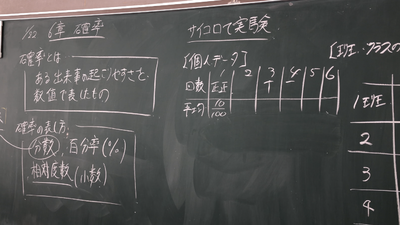 1/22 6章 確率
確率とは
ある出来事の起こりやすさを
数値で表したもの
確率の表し方
分数 百分率(%)
相対度数(小数)
サイコロで実験
[個人データ]
1 2 3 4 5 6
回数 正正 T 一
平均 10/100
[班・クラスの
1班
2
3
4